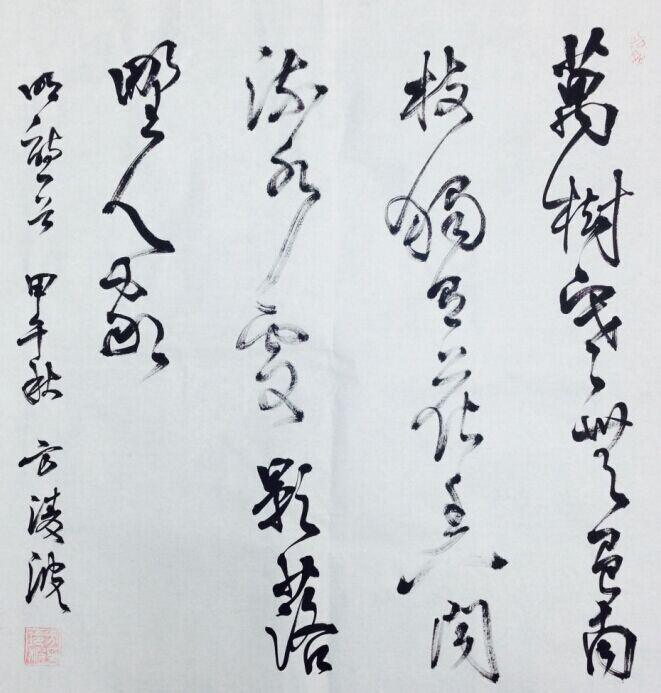 萬樹寒無色南
枝獨有花香聞
流水處影落
野人家
明 甲午秋 方淩波